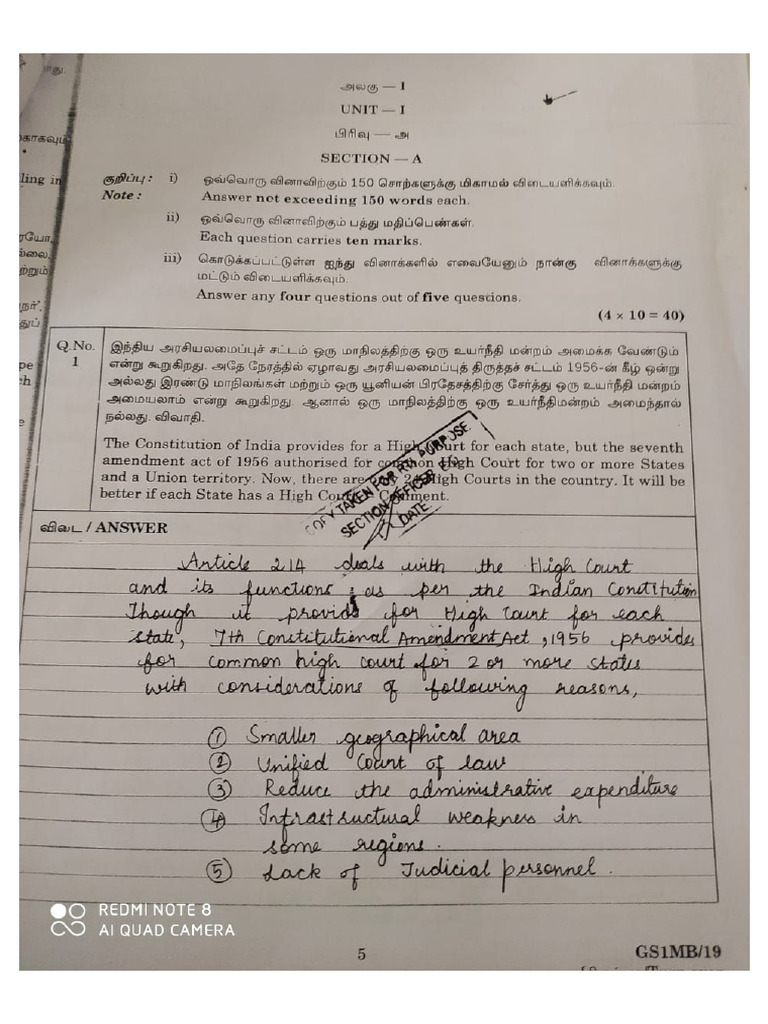 அலகு — I
UNIT — I
பிரிவு — அ
SECTION — A
குறிப்பு : i) ஒவ்வொரு வினாவிற்கும் 150 சொற்களுக்கு மிகாமல் விடையளிக்கவும்.
Note : Answer not exceeding 150 words each.
ii) ஒவ்வொரு வினாவிற்கும் பத்து மதிப்பெண்கள்.
Each question carries ten marks.
iii) கொடுக்கப்பட்டுள்ள ஐந்து வினாக்களில் எவையேனும் நான்கு வினாக்களுக்கு
மட்டும் விடையளிக்கவும்.
Answer any four questions out of five questions.
(4 × 10 = 40)
Q.No.
1
இந்திய அரசியலமைப்புச் சட்டம் ஒரு மாநிலத்திற்கு ஒரு உயர்நீதி மன்றம் அமைக்க வேண்டும்
என்று கூறுகிறது. அதே நேரத்தில் ஏழாவது அரசியலமைப்புத் திருத்தச் சட்டம் 1956-ன் கீழ் ஒன்று
அல்லது இரண்டு மாநிலங்கள் மற்றும் ஒரு யூனியன் பிரதேசத்திற்கு சேர்த்து ஒரு உயர்நீதி மன்றம்
அமையலாம் என்று கூறுகிறது. ஆனால் ஒரு மாநிலத்திற்கு ஒரு உயர்நீதிமன்றம் அமைந்தால்
நல்லது. விவாதி.
The Constitution of India provides for a High Court for each state, but the seventh
amendment act of 1956 authorised for common High Court for two or more States
and a Union territory. Now, there are High Courts in the country. It will be
better if each State has a High Court. Comment.
COPY TAKEN FOR RTI PURPOSE
SECTION OFFICER
DATE
விடை / ANSWER
Article 214 deals with the High Court
and its functions as per the Indian Constitution
Though it provids for High Court for each
state, 7th Constitutional Amendment Act, 1956 provides
for common high court for 2 or more states
with considerations of following reasons,
① Smaller geographical area
② Unified Court of law
③ Reduce the administrative expenditure
④ Infrastructural weakness in
some regions.
⑤ Lack of Judicial personnel.
REDMI NOTE 8
AI QUAD CAMERA
5
GS1MB/19